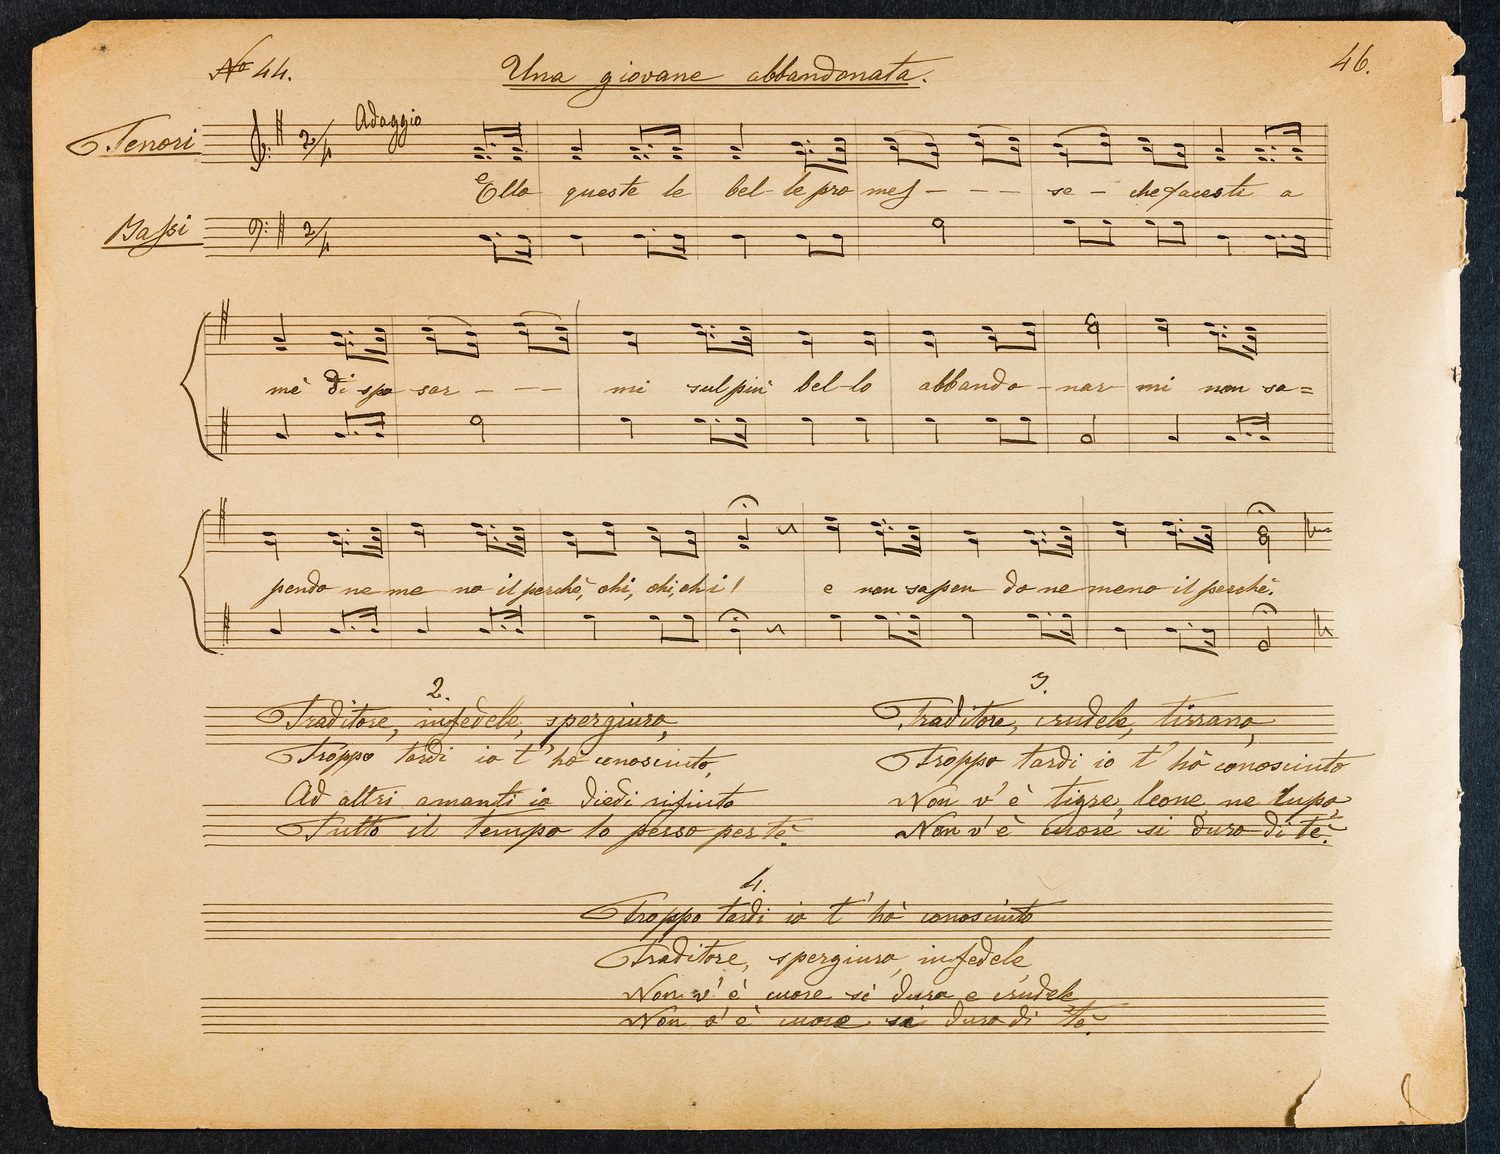 No 44.
Una giovane abbandonata.
46.
Adaggio
Tenori
Ello queste le bel- le pro mes - - - se - che facesti a
Bassi
2/4
mè di spo sar - - - mi sul più bel-lo abbando - nar mi non sa=
pendo ne me no il perchè, ohi, ohi, ohi! e non sapen do ne meno il perchè.
2.
Traditore, infedele, spergiuro,
Troppo tardi io t'hò conosciuto,
Ad altri amanti io diedi rifiuto
Tutto il tempo lo perso per tè.
3.
Traditore, crudele, tirrano,
Troppo tardi io t'hò conosciuto
Non v'è tigre, leone, ne lupo,
Non v'è cuore si duro di tè.
4.
Troppo tardi io t'hò conosciuto
Traditore, spergiuro, infedele
Non v'è cuore si duro e crudele
Non v'è cuore si duro di tè.